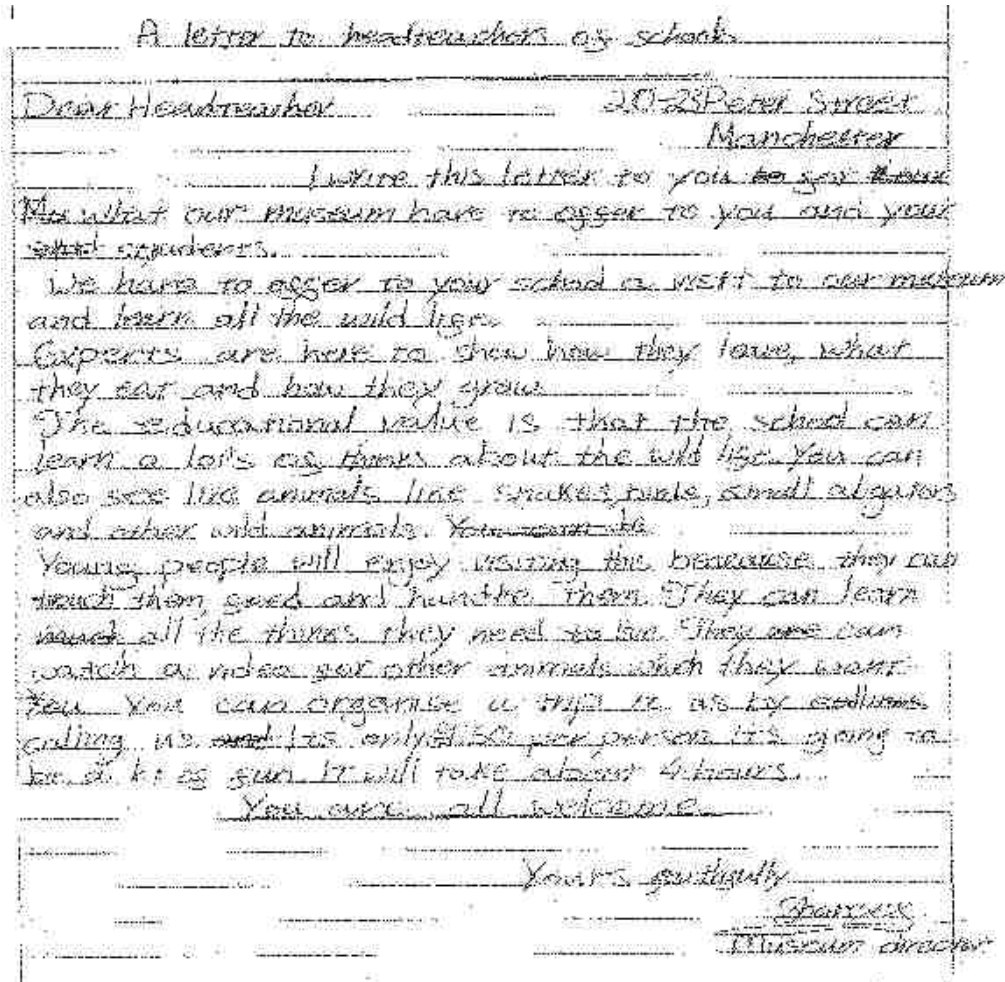 A letter to headteachers of schools
Dear Headteacher 20-23 Peter Street
Manchester
I write this letter to you to for
what our museum have to offer to you and your
students.
We have to offer to your school a visit to our museum
and learn all the wild life.
Experts are here to show how they love, what
they eat and how they grow
The educational value is that the school can
learn a lots of thinks about the wild life. You can
also see live animals like snakes, birds, small aligators
and other wild animals. You can
Young people will enjoy visiting the because they can
touch them, feed and handle them. They can learn
much all the thinks they need to They are can
watch a video for other animals which they want
You You can organise a trip to us by
calling us and Its only £1.50 per person it's going to
be a lot of fun. It will take about 4 hours.
You are all welcome
Yours faithfully
Museum director